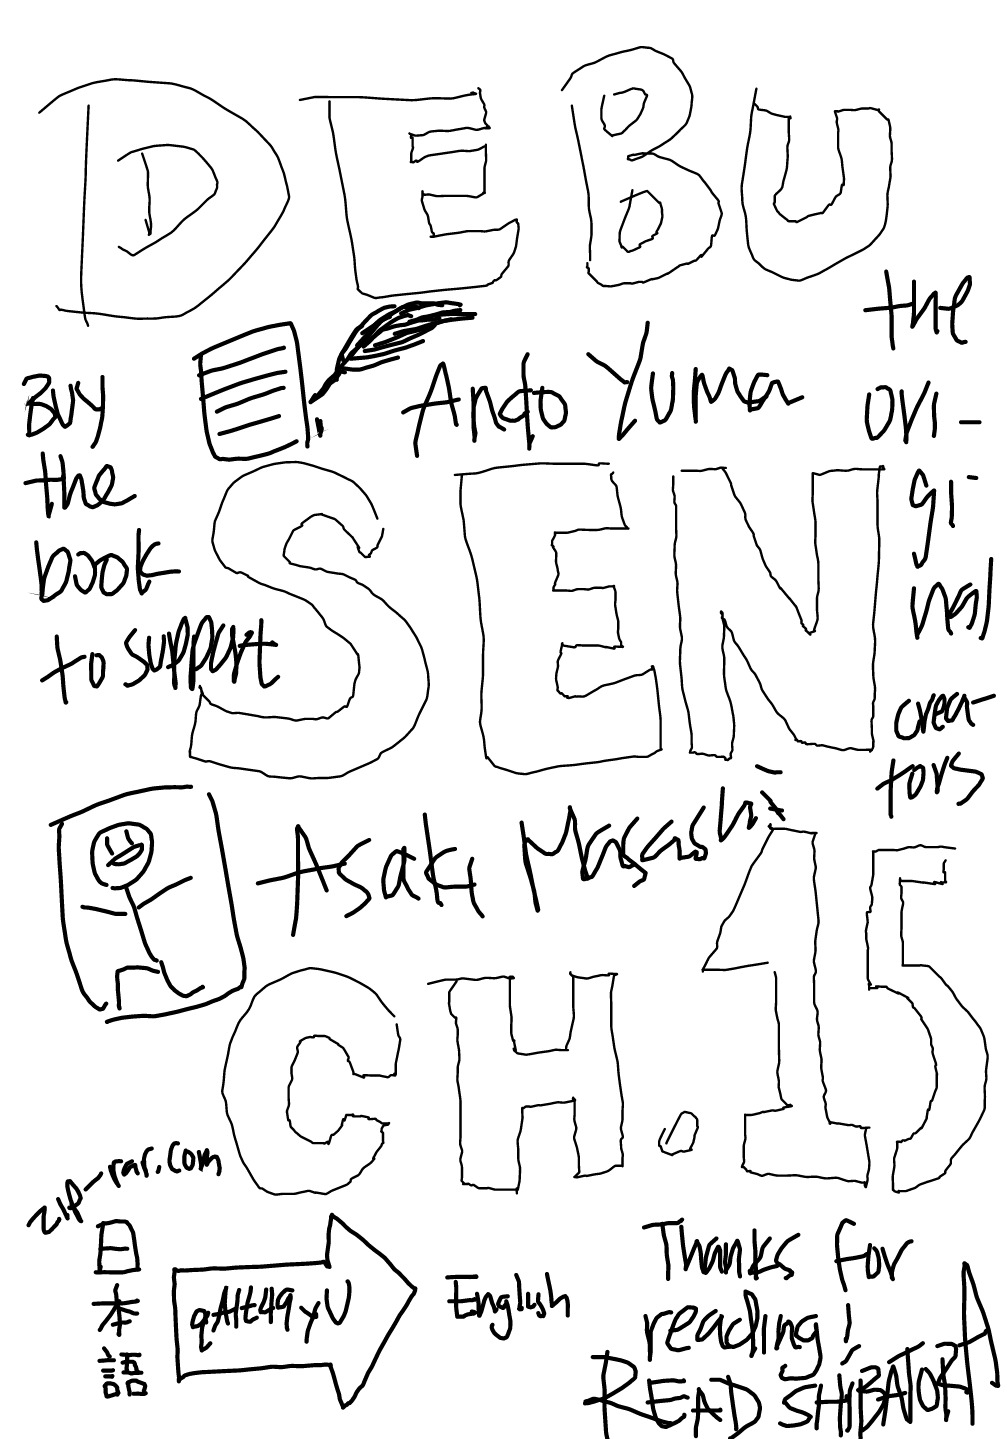 DEBU
Ando Yuma
SEN
Asaki Masashi
CH. 15
Buy
the
book
to support
the
ori-
gi-
nal
crea-
tors
zip-rar.com
日
本
語
English
Thanks for
reading!
READ SHIBATORA